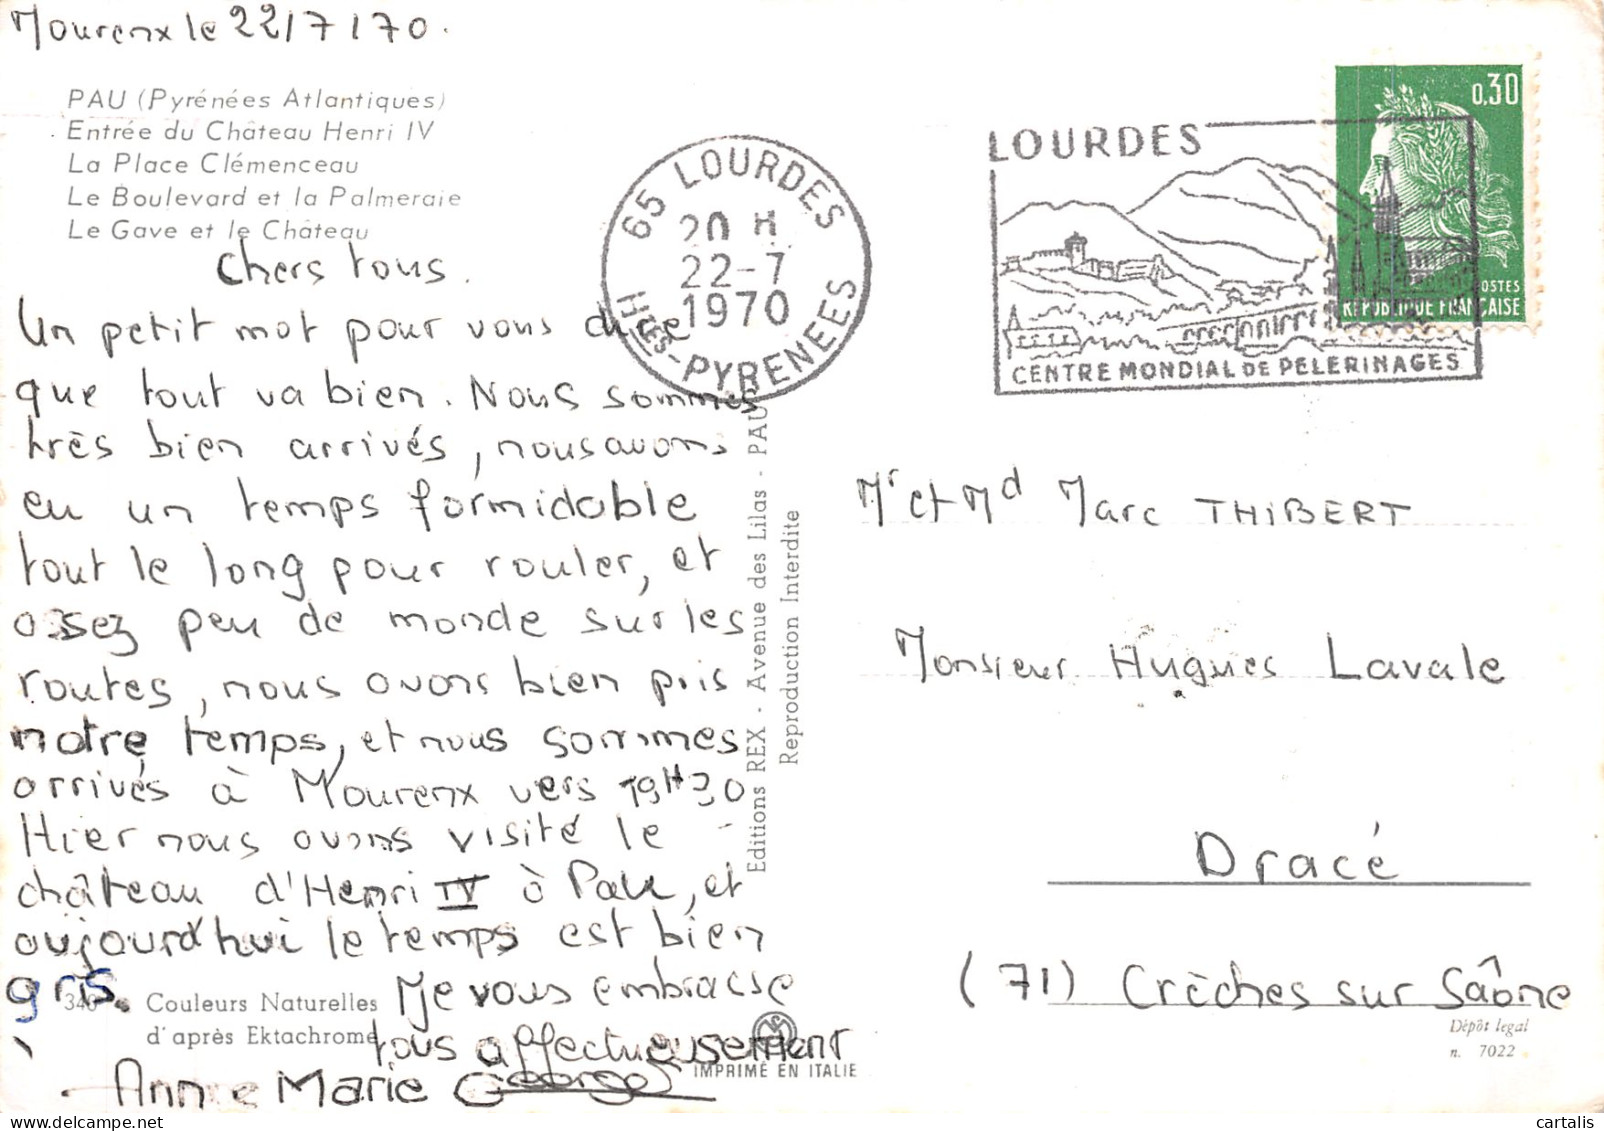 Mourenx le 22/7/70.
PAU (Pyrénées Atlantiques)
Entrée du Château Henri IV
La Place Clémenceau
Le Boulevard et la Palmeraie
Le Gave et le Château
Chers tous.
Un petit mot pour vous dire
que tout va bien. Nous sommes
très bien arrivés, nous avons
eu un temps formidable
tout le long pour rouler, et
assez peu de monde sur les
routes, nous avons bien pris
notre temps, et nous sommes
arrivés à Mourenx vers 19H30
Hier nous avons visité le
château d'Henri IV à Pau, et
aujourd'hui le temps est bien
gris.
Je vous embrasse
tous affectueusement
Anne Marie Georges
340 Couleurs Naturelles
d'après Ektachrome
IMPRIMÉ EN ITALIE
Editions REX - Avenue des Lilas - PAU
Reproduction Interdite
65 LOURDES
20 H
22-7
1970
HTES-PYRENEES
LOURDES
CENTRE MONDIAL DE PELERINAGES
0,30
POSTES
REPUBLIQUE FRANÇAISE
Mr et Md Marc THIBERT
Monsieur Hugues Lavale
Dracé
(71) Crèches sur Saône
Dépôt legal
n. 7022
cartalis
delcampe.net